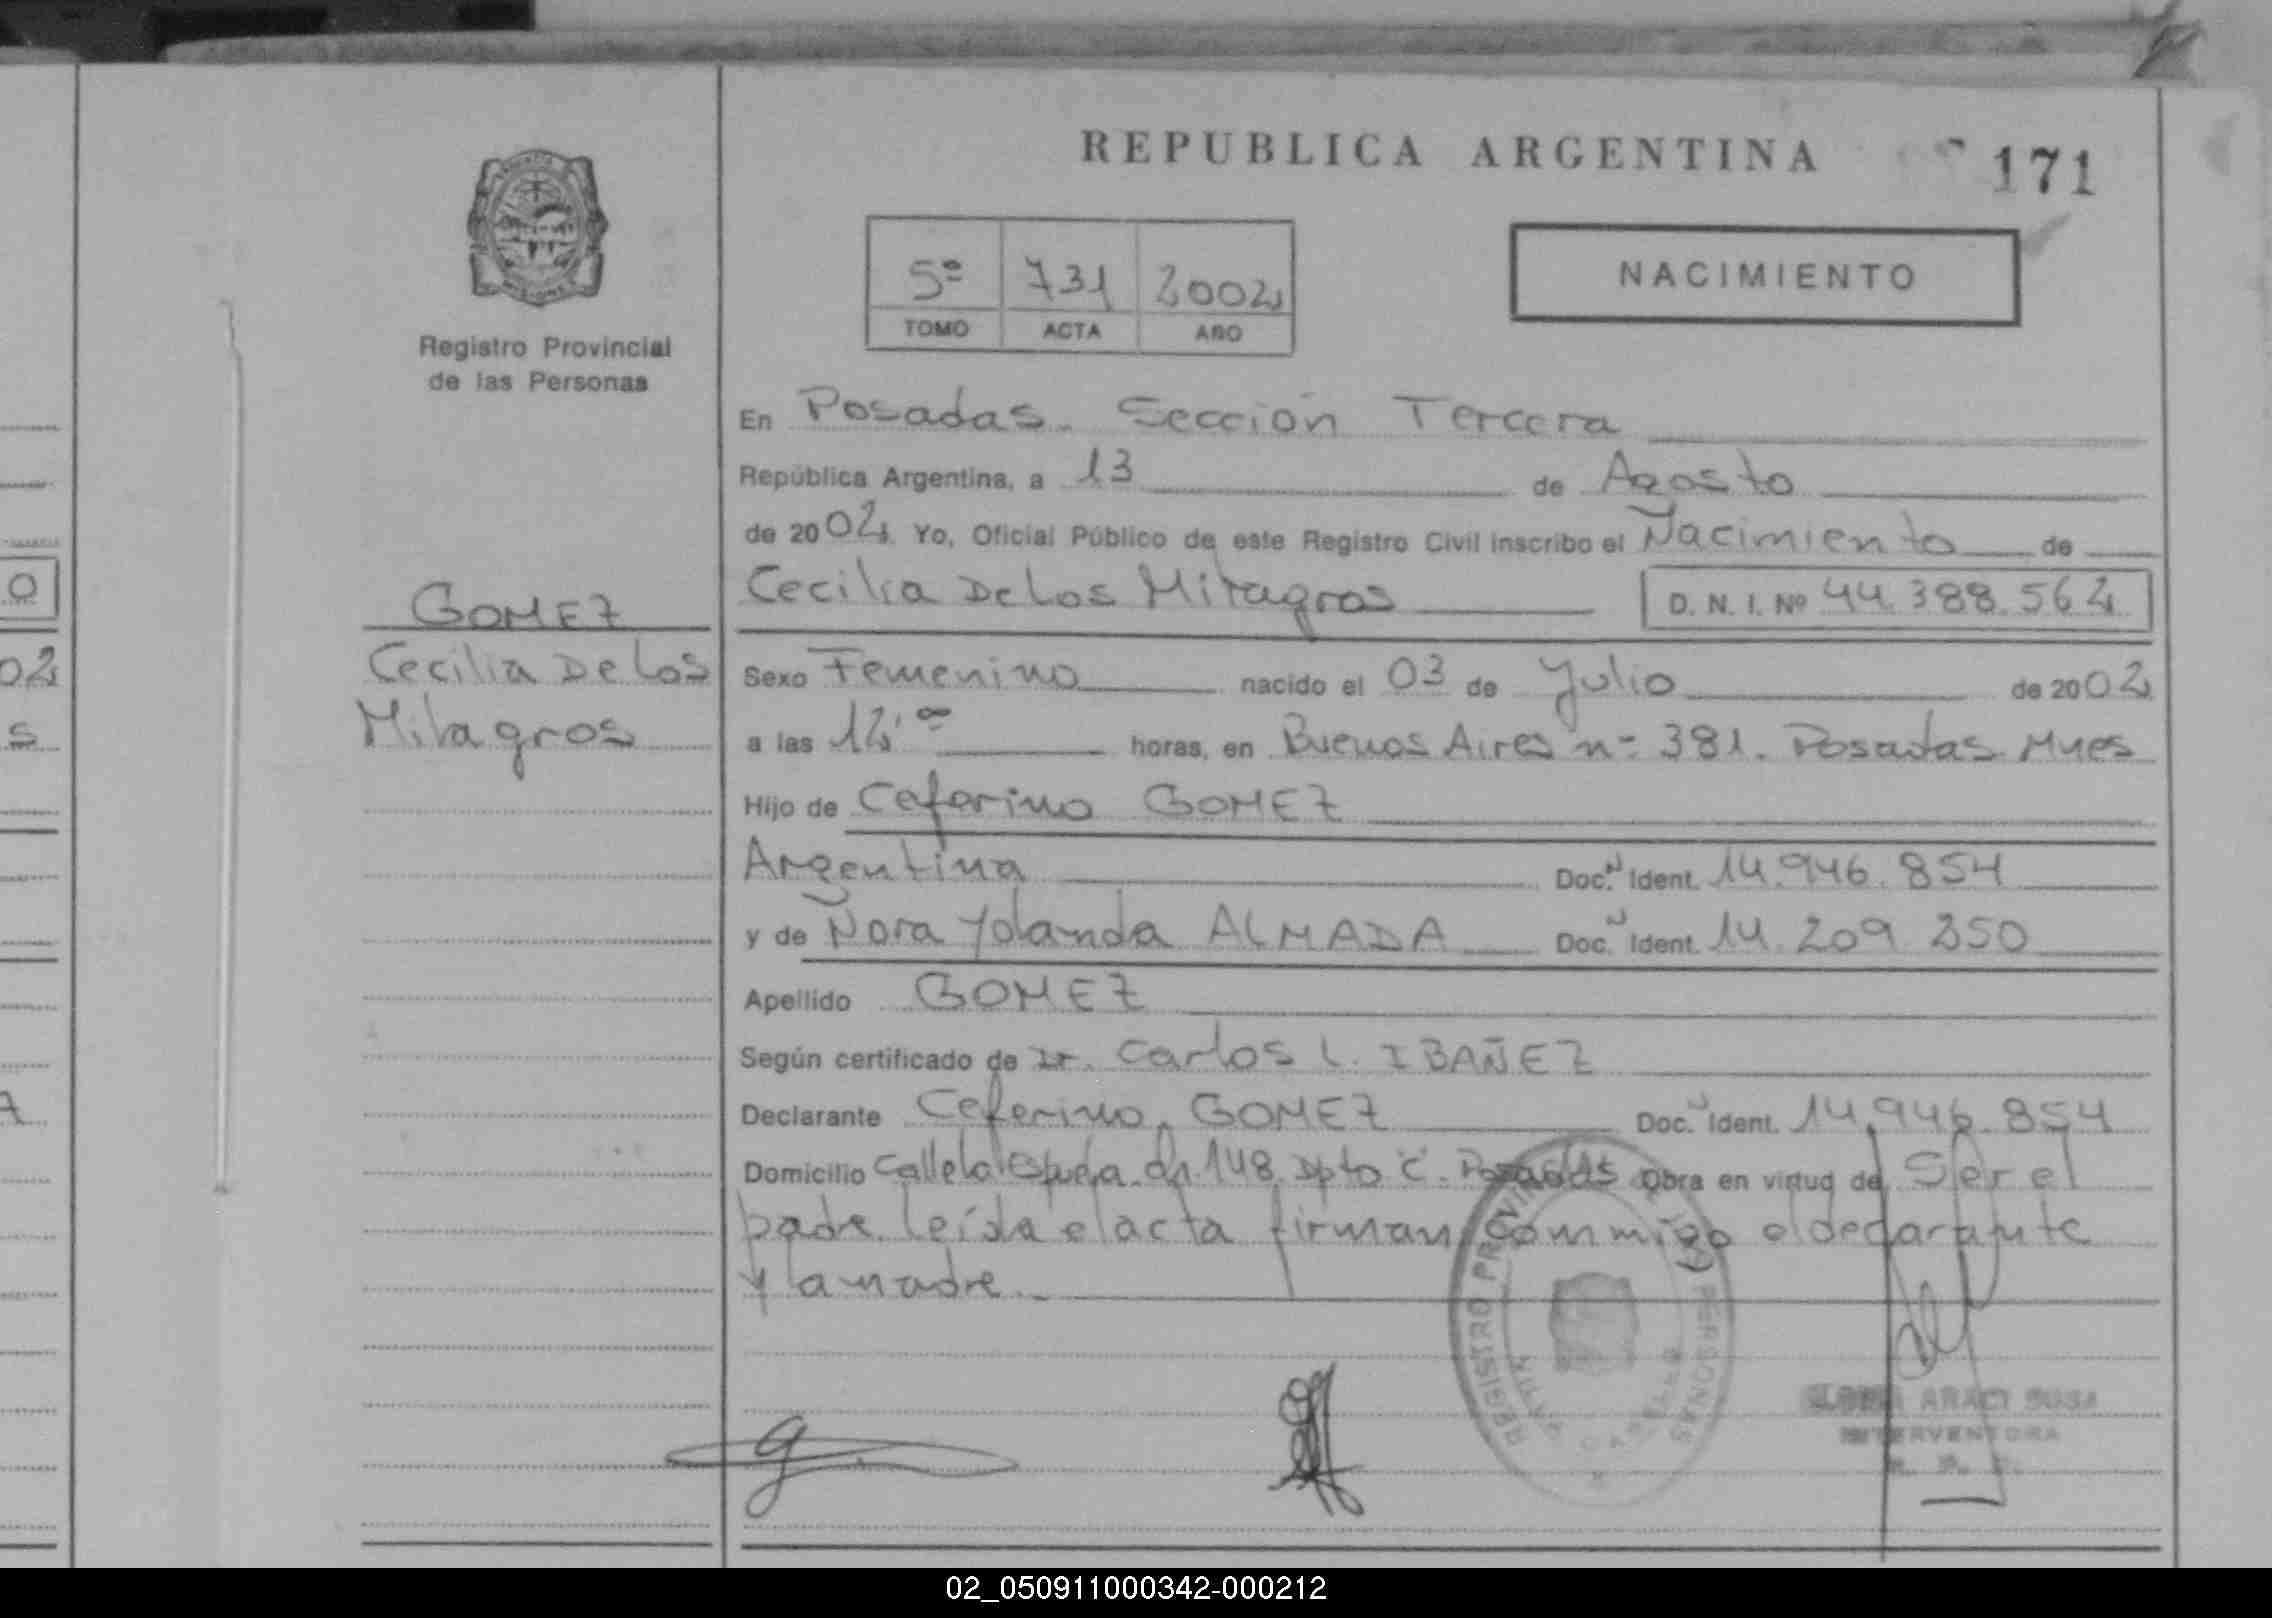 REPUBLICA ARGENTINA
171
5º 731 2002
TOMO ACTA AÑO
NACIMIENTO
Registro Provincial
de las Personas
En Posadas. Sección Tercera
República Argentina, a 13 de Agosto
de 2002 Yo, Oficial Público de este Registro Civil inscribo el Nacimiento de
Cecilia De Los Milagros D. N. I. Nº 44.388.562
GOMEZ
Cecilia De Los
Milagros
Sexo Femenino nacido el 03 de Julio de 2002
a las 12,00 horas, en Buenos Aires nº 381. Posadas Mnes
Hijo de Ceferino GOMEZ
Argentina Doc. Ident. 14.946.854
y de Nora Yolanda ALMADA Doc. Ident. 14.209.250
Apellido GOMEZ
Según certificado de Dr. Carlos L. IBAÑEZ
Declarante Ceferino GOMEZ Doc. Ident. 14.946.854
Domicilio Calle La 148 Dpto "C". Posadas Obra en virtud de Ser el
padre. leída el acta firman conmigo el declarante
y la madre
REGISTRO PROVINCIAL DE LAS PERSONAS
ARACI SUSA
INTERVENTORA
02
s
O
02_050911000342-000212